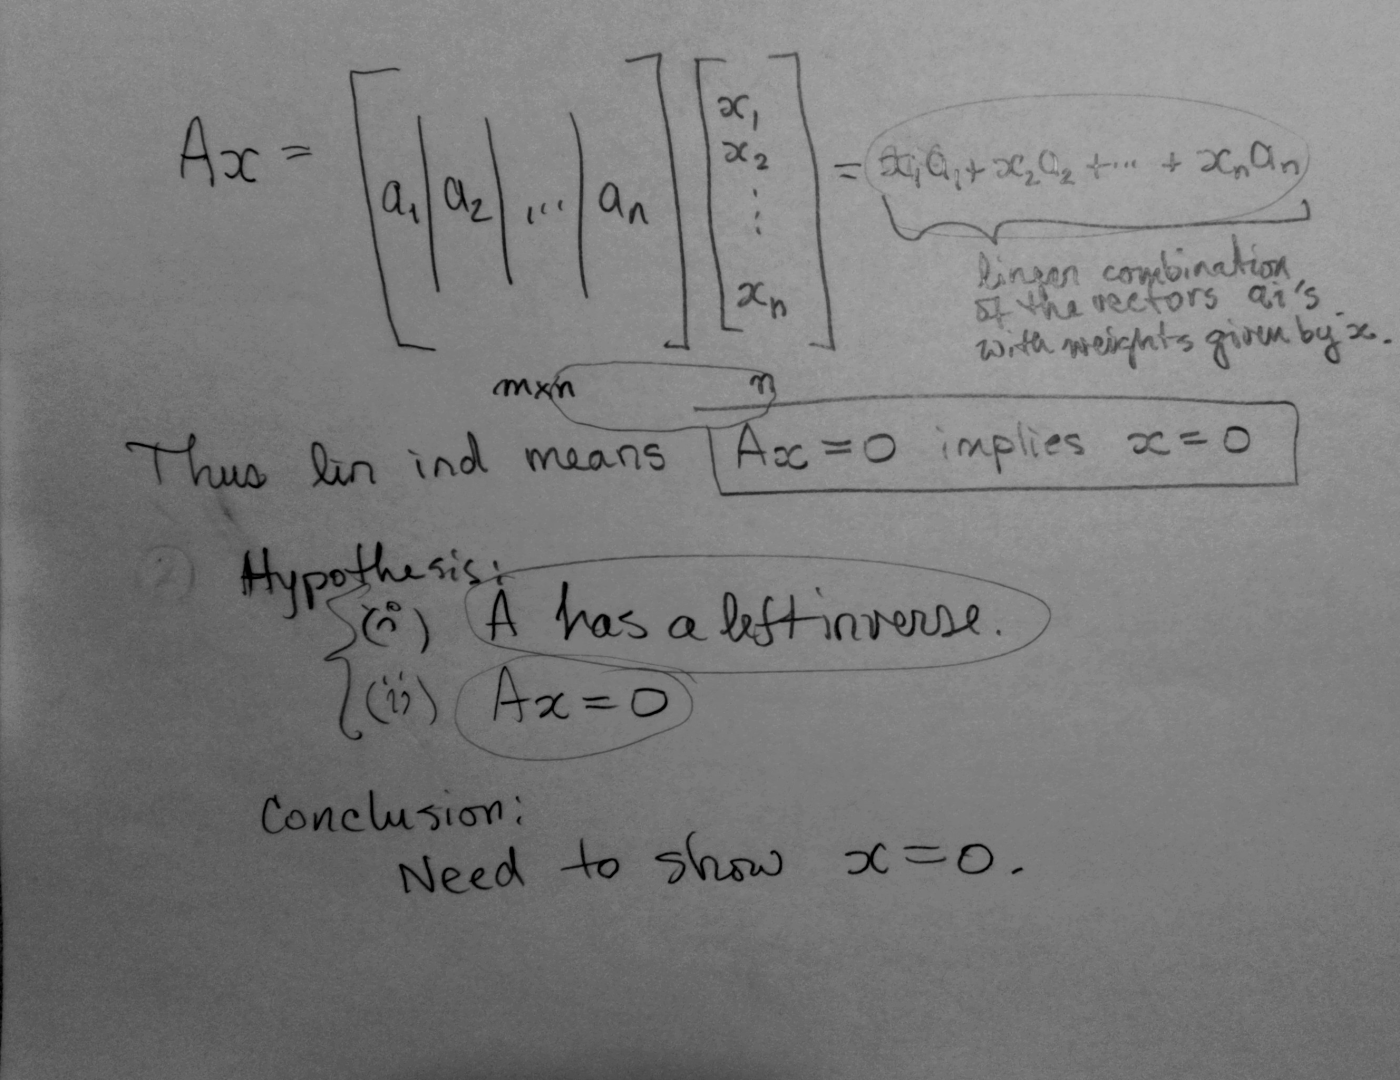 Ax = [a₁ | a₂ | ... | aₙ] [x₁ x₂ ⋮ xₙ] = x₁a₁ + x₂a₂ + ... + xₙaₙ
linear combination
of the vectors ai's
with weights given by x.
m×n n
Thus lin ind means Ax = 0 implies x = 0
(2) Hypothesis:
(i) A has a left inverse.
(ii) Ax = 0
Conclusion:
Need to show x = 0.